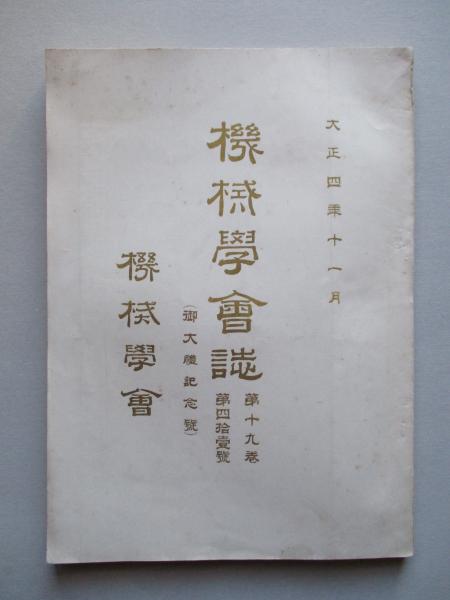 大正四年十一月
機械學會誌
第十九卷
第四拾壹號
(御大禮記念號)
機械學會